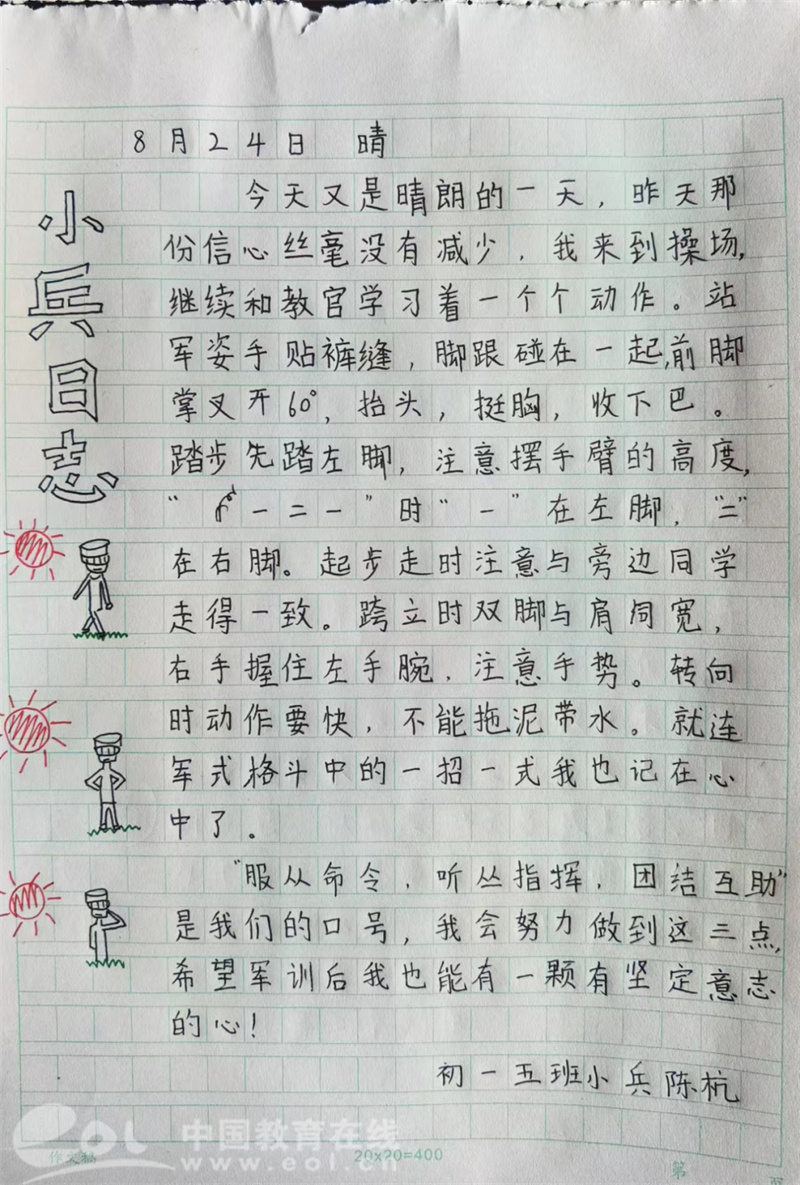 8月24日 晴
小兵日志
今天又是晴朗的一天，昨天那
份信心丝毫没有减少，我来到操场，
继续和教官学习着一个个动作。站
军姿手贴裤缝，脚跟碰在一起，前脚
掌叉开60°，抬头，挺胸，收下巴。
踏步先踏左脚，注意摆手臂的高度，
“一二一”时“一”在左脚，“二”
在右脚。起步走时注意与旁边同学
走得一致。跨立时双脚与肩同宽，
右手握住左手腕，注意手势。转向
时动作要快，不能拖泥带水。就连
军式格斗中的一招一式我也记在心
中了。
“服从命令，听从指挥，团结互助”
是我们的口号，我会努力做到这三点，
希望军训后我也能有一颗有坚定意志
的心！
初一五班小兵陈杭
eol 中国教育在线
www.eol.cn
作文稿
20x20=400
第 页